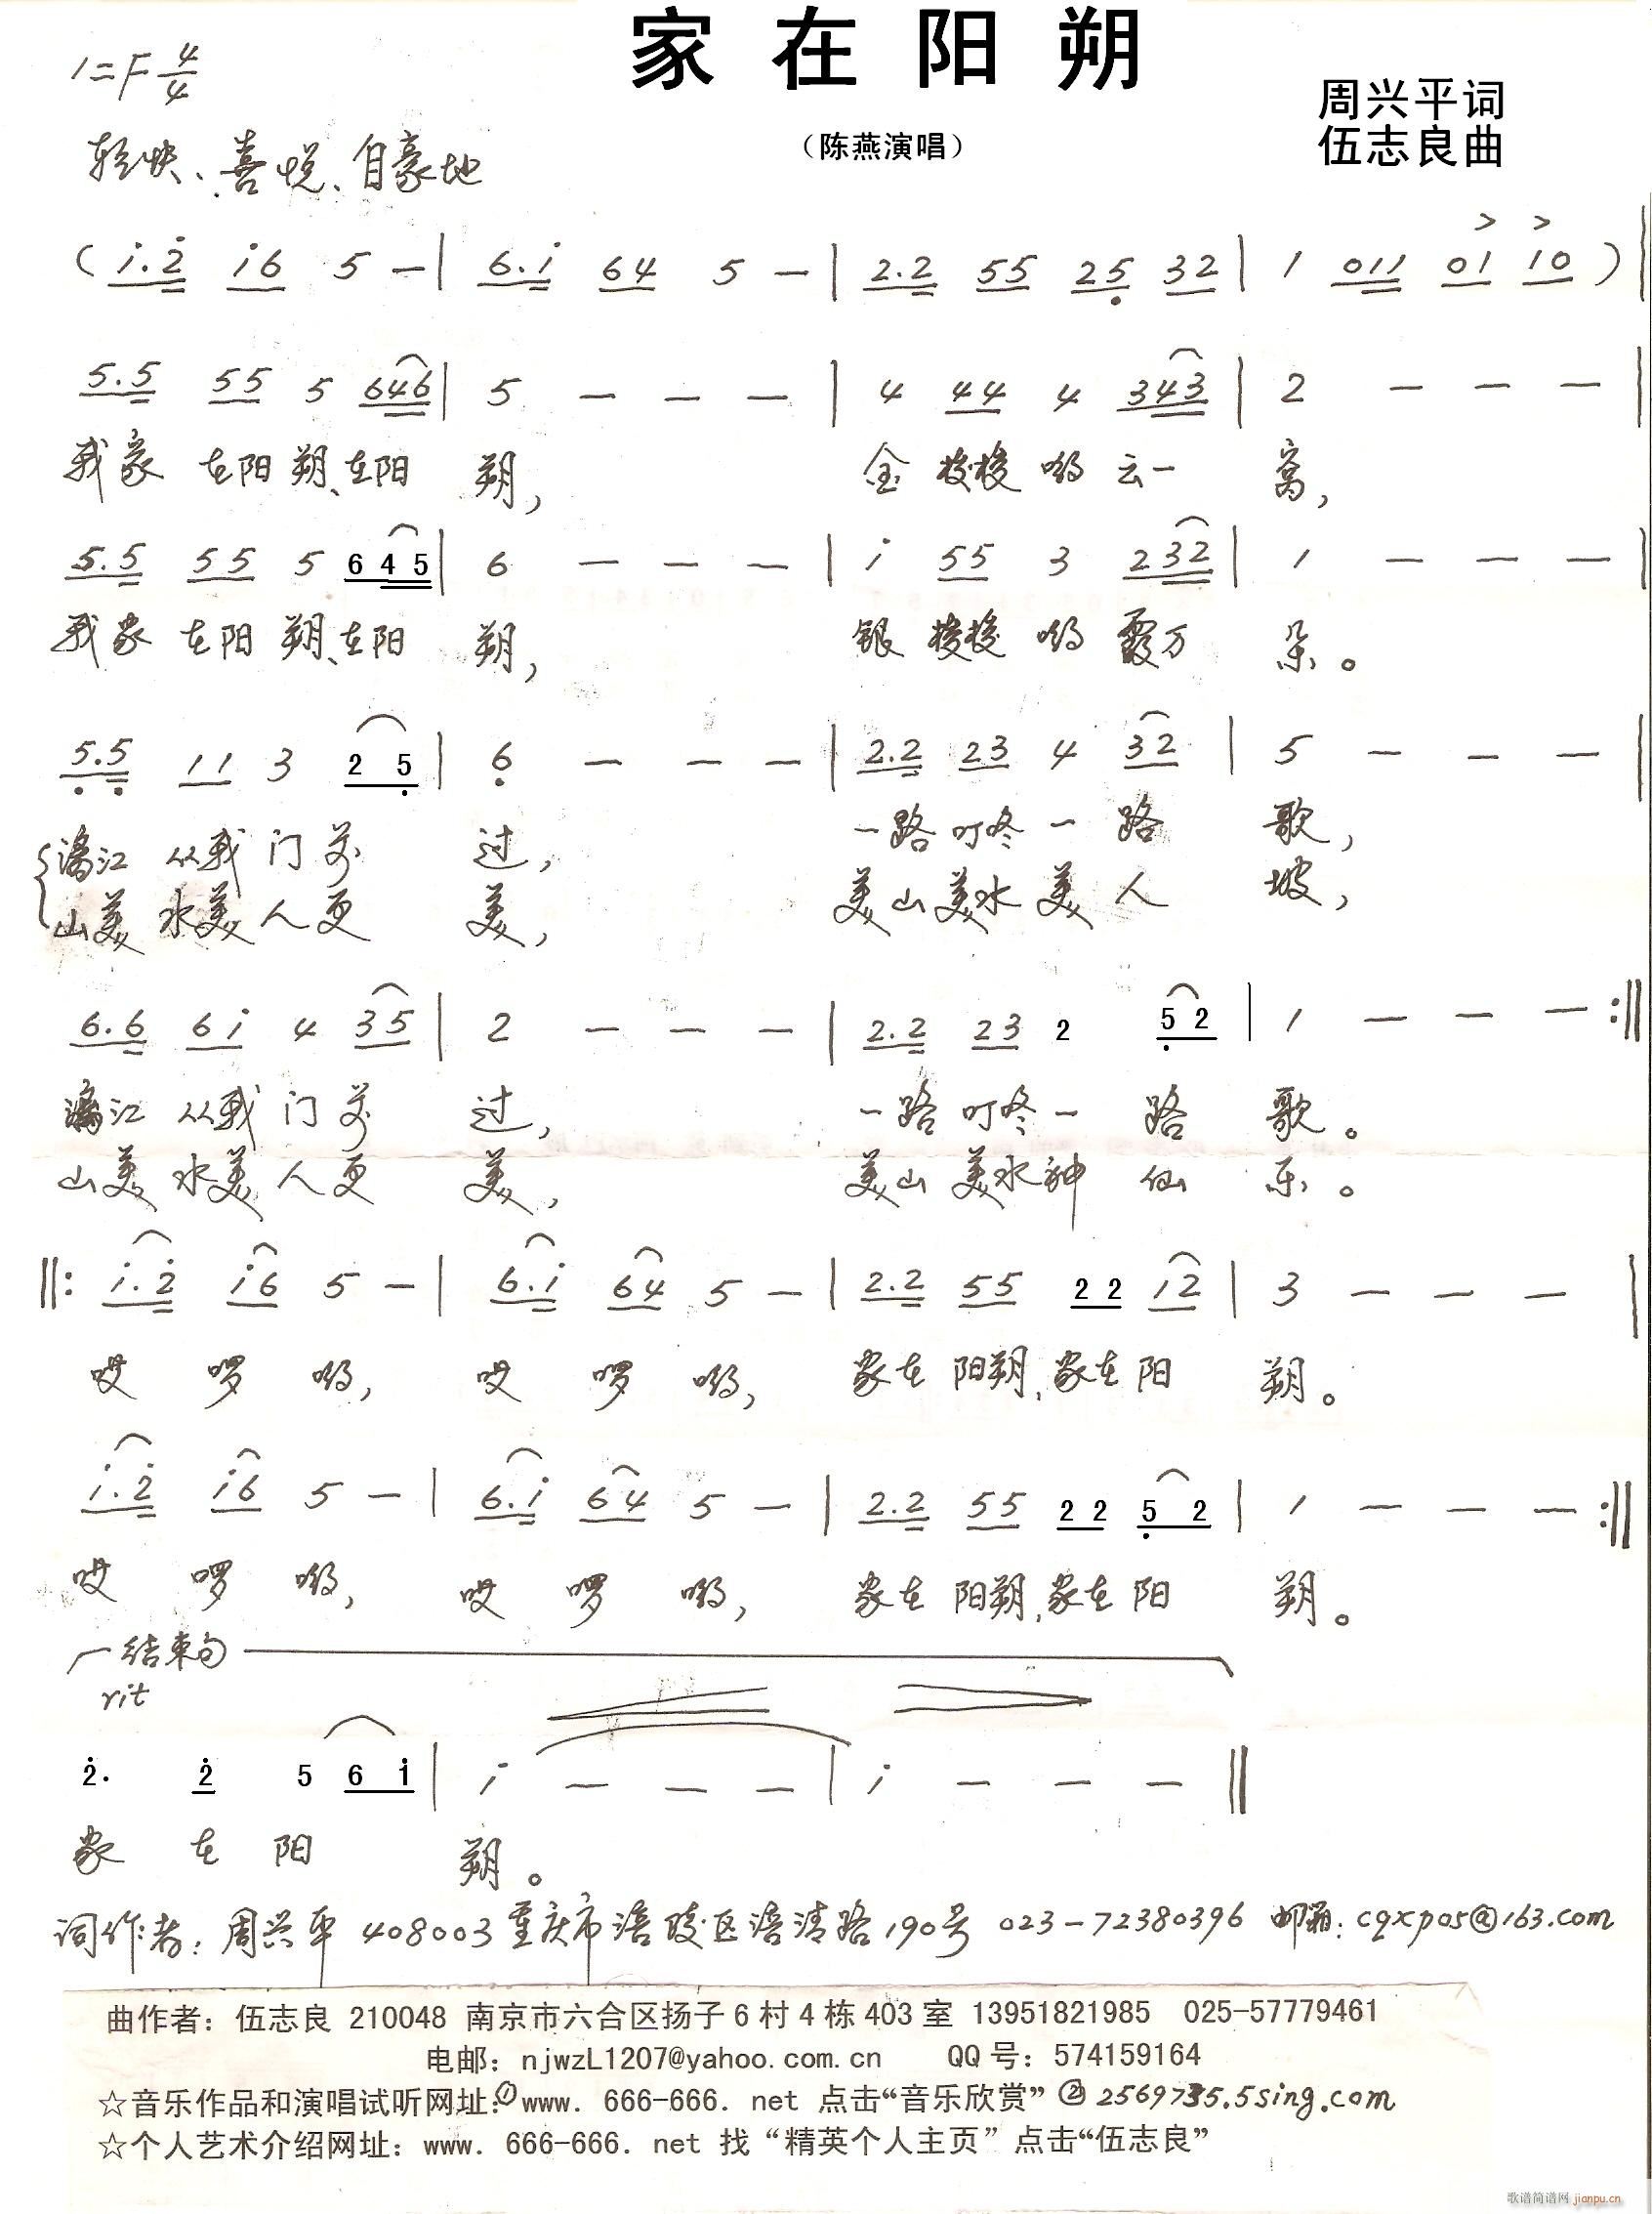 家在阳朔
1=F 4/4
周兴平词
伍志良曲
轻快、喜悦、自豪地
（陈燕演唱）
( i.2 i6 5 — | 6.i 64 5 — | 2.2 55 25 32 | 1 011 01 10 ) |
5.5 55 5 646 | 5 — — — | 4 44 4 343 | 2 — — — |
我家 在阳朔、在阳 朔， 金梭梭哟云一 窝，
5.5 55 5 645 | 6 — — — | i 55 3 232 | 1 — — — |
我家 在阳朔、在阳 朔， 银梭梭哟霞万 朵。
5.5 11 3 2 5 | 6 — — — | 2.2 23 4 32 | 5 — — — |
漓江 从我门前 过， 一路叮咚一路 歌，
山美水美人更 美， 美山美水美人 坡，
6.6 6i 4 35 | 2 — — — | 2.2 23 2 5 2 | 1 — — — :||
漓江 从我门前 过， 一路叮咚一路 歌。
山美水美人更 美， 美山美水神仙 乐。
||: i.2 i6 5 — | 6.i 64 5 — | 2.2 55 2 2 12 | 3 — — — |
哎 啰 哟， 哎 啰 哟， 家在阳朔，家在阳 朔。
i.2 i6 5 — | 6.i 64 5 — | 2.2 55 2 2 5 2 | 1 — — — :||
哎 啰 哟， 哎 啰 哟， 家在阳朔，家在阳 朔。
结束句
rit
2. 2 5 6 i | i — — — | i — — — ||
家 在 阳 朔。
词作者：周兴平 408003 重庆市涪陵区涪清路190号 023-72380396 邮箱：cqxp05@163.com
曲作者：伍志良 210048 南京市六合区扬子6村4栋403室 13951821985 025-57779461
电邮：njwzL1207@yahoo.com.cn QQ号：574159164
☆音乐作品和演唱试听网址：①www. 666-666. net 点击“音乐欣赏” ②2569735.5sing.com
☆个人艺术介绍网址：www. 666-666. net 找“精英个人主页”点击“伍志良”
歌谱简谱网 jianpu.cn